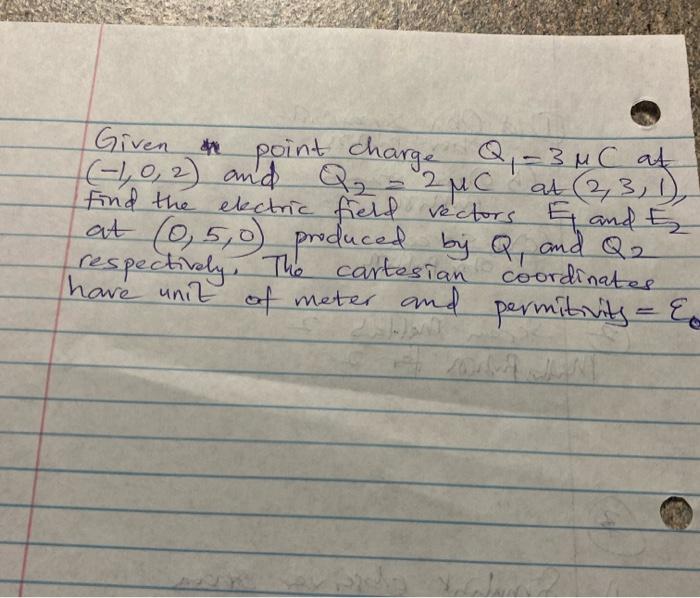 Given point charge Q₁ = 3 μC at
(-1, 0, 2) and Q₂ = 2 μC at (2, 3, 1),
Find the electric field vectors E₁ and E₂
at (0, 5, 0) produced by Q₁ and Q₂
respectively. The cartesian coordinates
have unit of meter and permitivity = ε₀